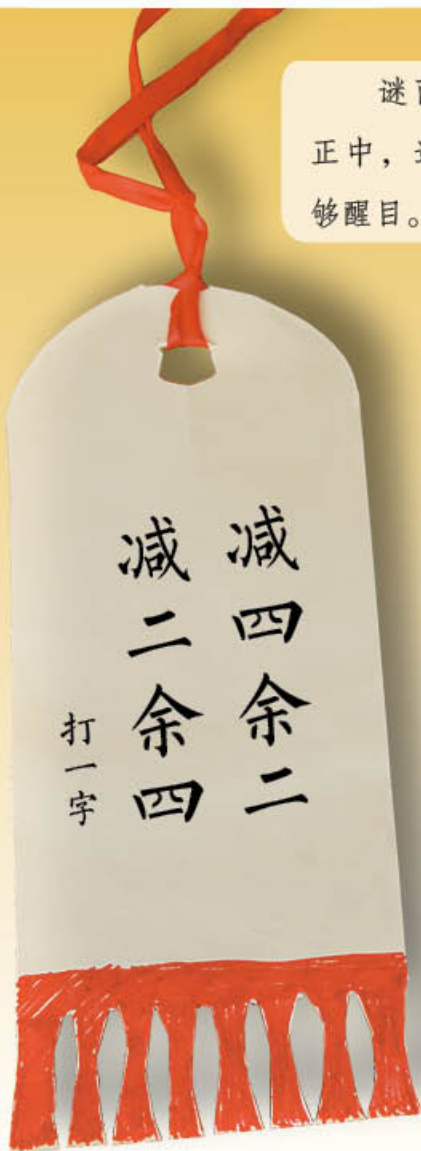 谜
正中，
够醒目。
减四余二
减二余四
打一字